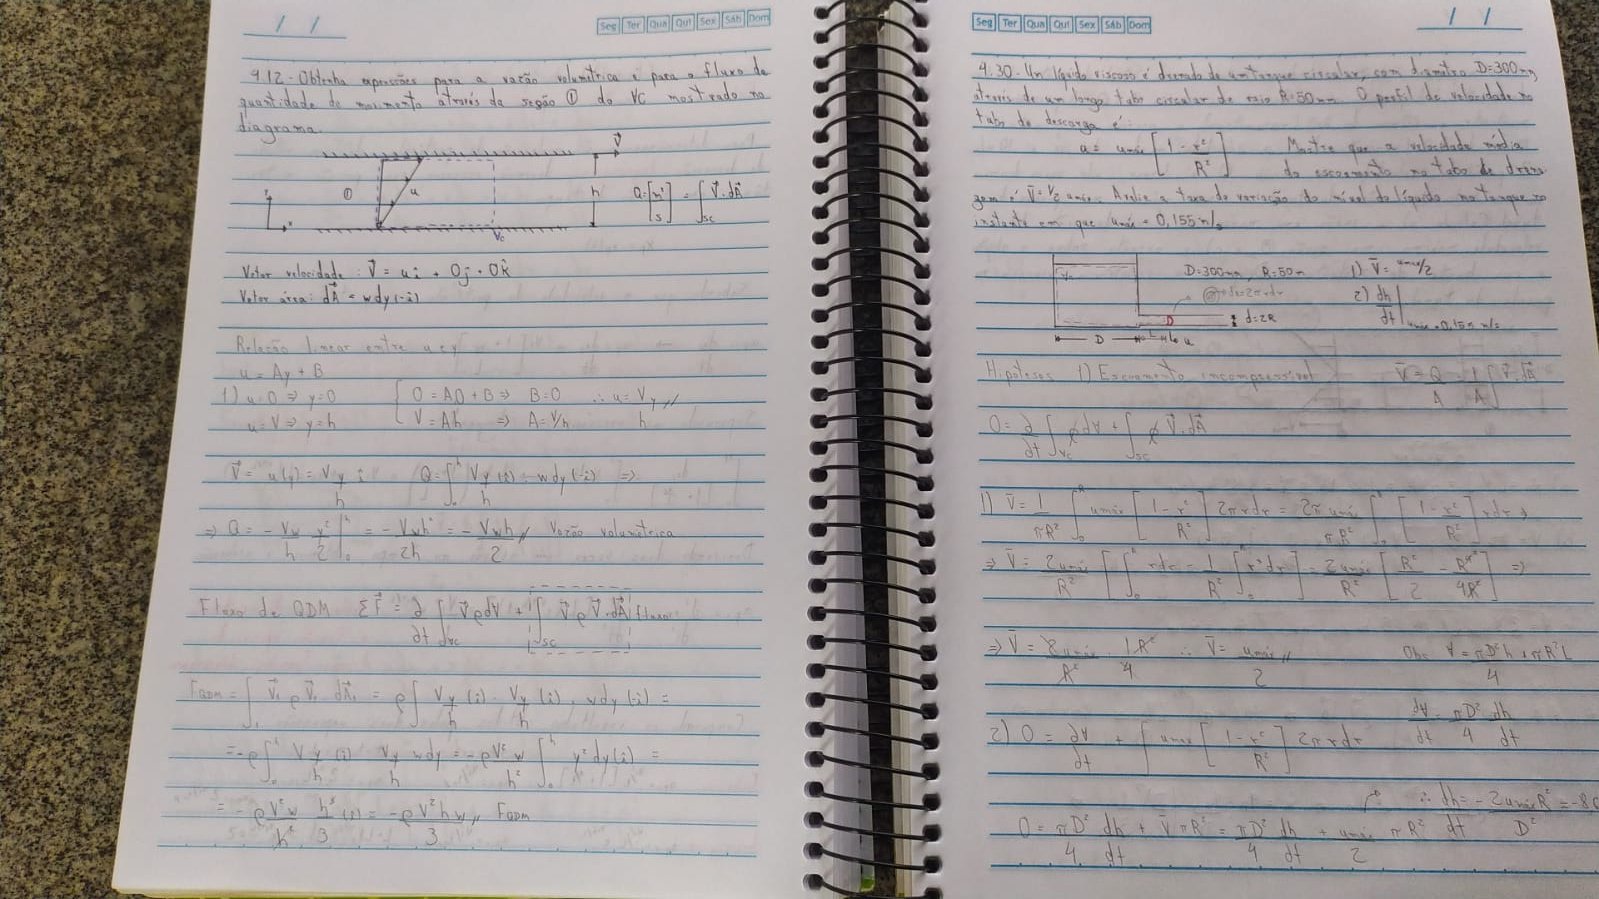 / /
Seg Ter Qua Qui Sex Sáb Dom
4.12 - Obtenha expressões para a vazão volumétrica e para o fluxo de
quantidade de movimento através da seção ① do VC mostrado no
diagrama.
V
① u h Q = [m³/s] = ∫sc V⃗·dA⃗
x
Vc
Vetor velocidade: V⃗ = uî + 0ĵ + 0k̂
Vetor área: dA⃗ = wdy(-î)
Relação linear entre u e y
u = Ay + B
1) u=0 ⇒ y=0 { 0 = A0 + B ⇒ B=0 ∴ u = Vy/h //
u=V ⇒ y=h V = Ah ⇒ A = V/h
V⃗ = u(y) = Vy/h î Q = ∫₀ʰ Vy/h (î) · wdy(-î) ⇒
⇒ Q = - Vw/h y²/2 |₀ʰ = - Vwh²/2h = - Vwh/2 // Vazão volumétrica
Fluxo de QDM ΣF⃗ = ∂/∂t ∫vc V⃗ρd∀ + ∫sc V⃗ρV⃗·dA⃗
FQDM = ∫₁ V⃗₁ρV⃗₁dA⃗₁ = ρ∫ Vy/h (î) · Vy/h (î) · wdy(-î) =
= -ρ∫₀ʰ Vy/h (î) Vy/h wdy = -ρV²w/h² ∫₀ʰ y²dy(î) =
= -ρV²w/h² h³/3 (î) = -ρV²hw/3 // FQDM
/ /
Seg Ter Qua Qui Sex Sáb Dom
4.30 - Um líquido viscoso é drenado de um tanque circular, com diâmetro D=300mm
através de um longo tubo circular de raio R=50mm. O perfil de velocidade no
tubo de descarga é:
u = umáx [1 - r²/R²] Mostre que a velocidade média
do escoamento no tubo de drena-
gem é V̄ = 1/2 umáx. Avalie a taxa de variação do nível do líquido no tanque no
instante em que umáx = 0,155 m/s
D=300mm, R=50m 1) V̄ = umax/2
2) dh/dt |umax=0,155 m/s
d=2R
D L u
Hipóteses 1) Escoamento incompressível V̄ = Q/A = 1/A ∫ V⃗·dA⃗
0 = ∂/∂t ∫vc ρd∀ + ∫sc ρV⃗·dA⃗
1) V̄ = 1/πR² ∫₀ᴿ umáx [1 - r²/R²] 2πrdr = 2πumáx/πR² ∫₀ᴿ [1 - r²/R²] rdr ⇒
⇒ V̄ = 2umáx/R² [∫₀ᴿ rdr - 1/R² ∫₀ᴿ r³dr] = 2umáx/R² [R²/2 - R⁴/4R²] ⇒
⇒ V̄ = 2umáx/R² · 1R²/4 ∴ V̄ = umáx/2 // Obs ∀ = πD²h/4 + πR²L
d∀/dt = πD²/4 dh/dt
2) 0 = ∂∀/∂t + ∫ umax [1 - r²/R²] 2πrdr
∴ dh/dt = - 2umáxR²/D²
0 = πD²/4 dh/dt + V̄πR² = πD²/4 dh/dt + umax/2 πR²